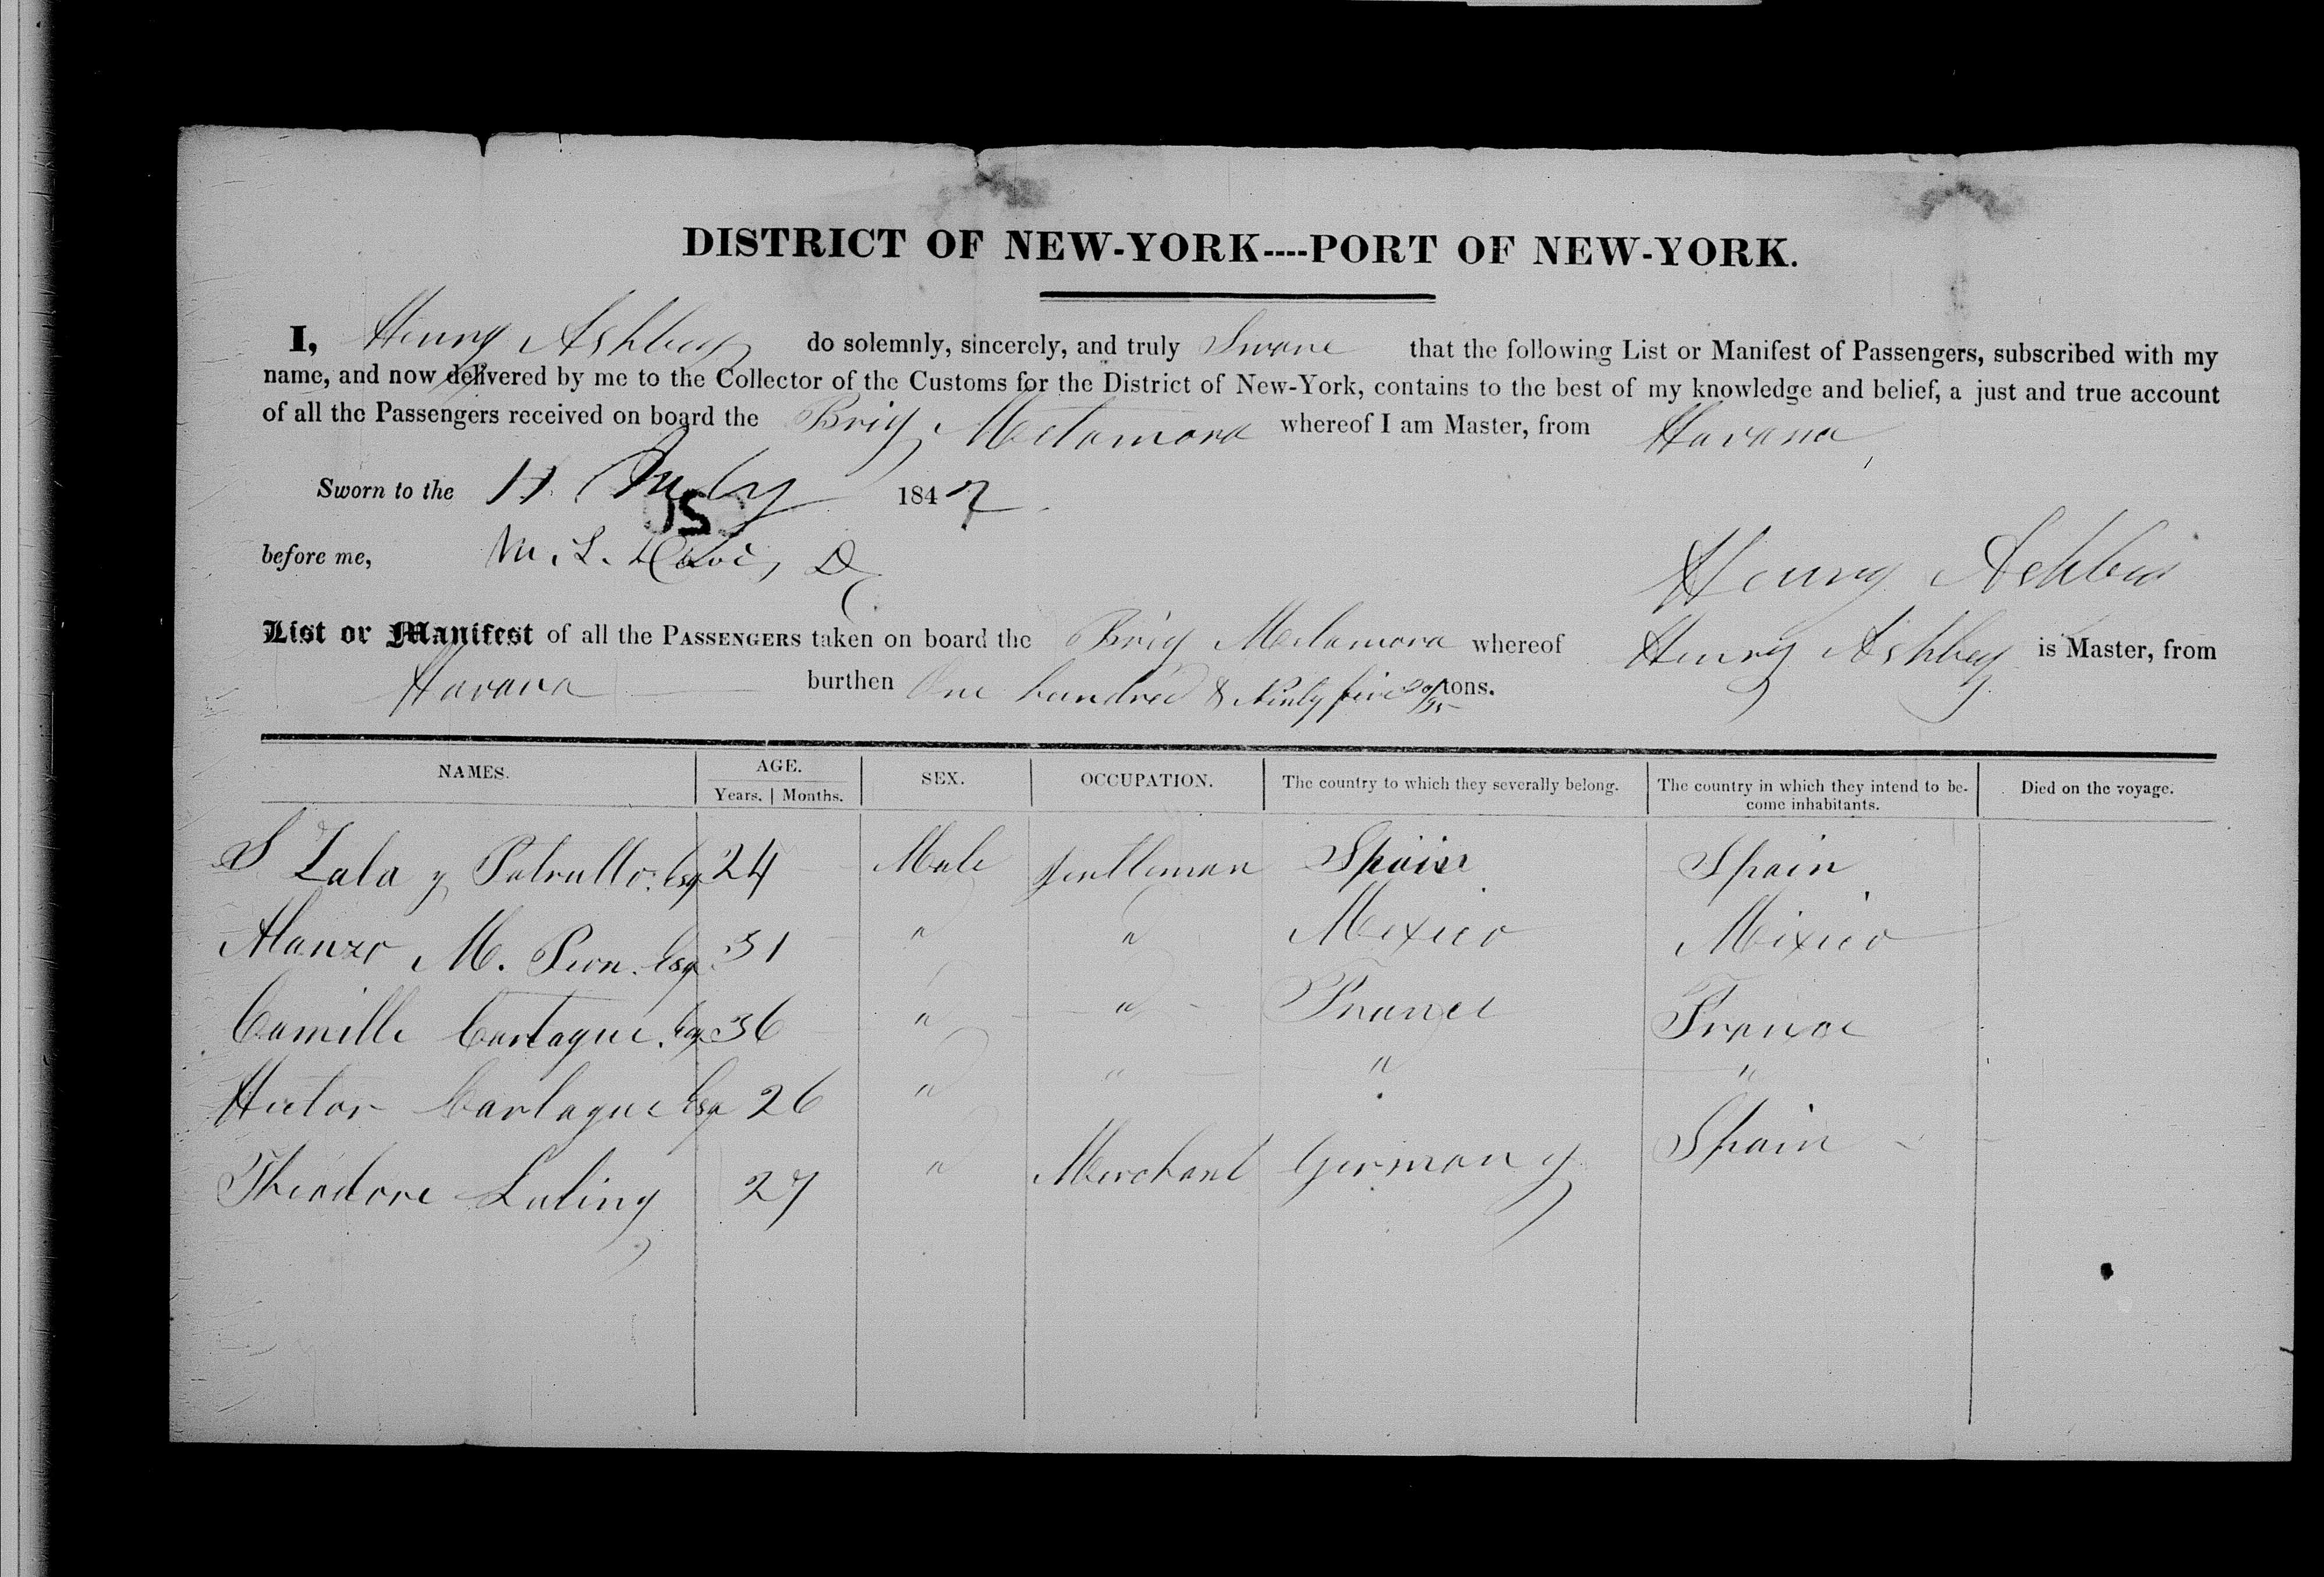 DISTRICT OF NEW-YORK----PORT OF NEW-YORK.
I, Henry Ashbey do solemnly, sincerely, and truly Sware that the following List or Manifest of Passengers, subscribed with my
name, and now delivered by me to the Collector of the Customs for the District of New-York, contains to the best of my knowledge and belief, a just and true account
of all the Passengers received on board the Brig Metamora whereof I am Master, from Havana
Sworn to the July 1847
15
before me, M. L. Davis, D
Henry Ashbey
List or Manifest of all the PASSENGERS taken on board the Brig Metamora whereof Henry Ashbey is Master, from
Havana burthen One hundred & Ninty five tons.
NAMES. AGE. SEX. OCCUPATION. The country to which they severally belong. The country in which they intend to be- Died on the voyage.
Years. | Months. come inhabitants.
S Zala y Esq 24 Male Gentleman Spain Spain
Alanzo M. Peon. Esq 31 " " Mexico Mexico
Camille Cartague. Esq 36 " " France France
Hector Cartague Esq 26 " " " "
Theodore Luling 27 " Merchant Germany Spain